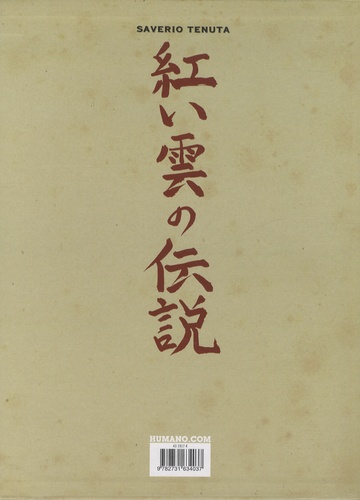 SAVERIO TENUTA
紅い雲の伝説
HUMANO.COM
9782731634037